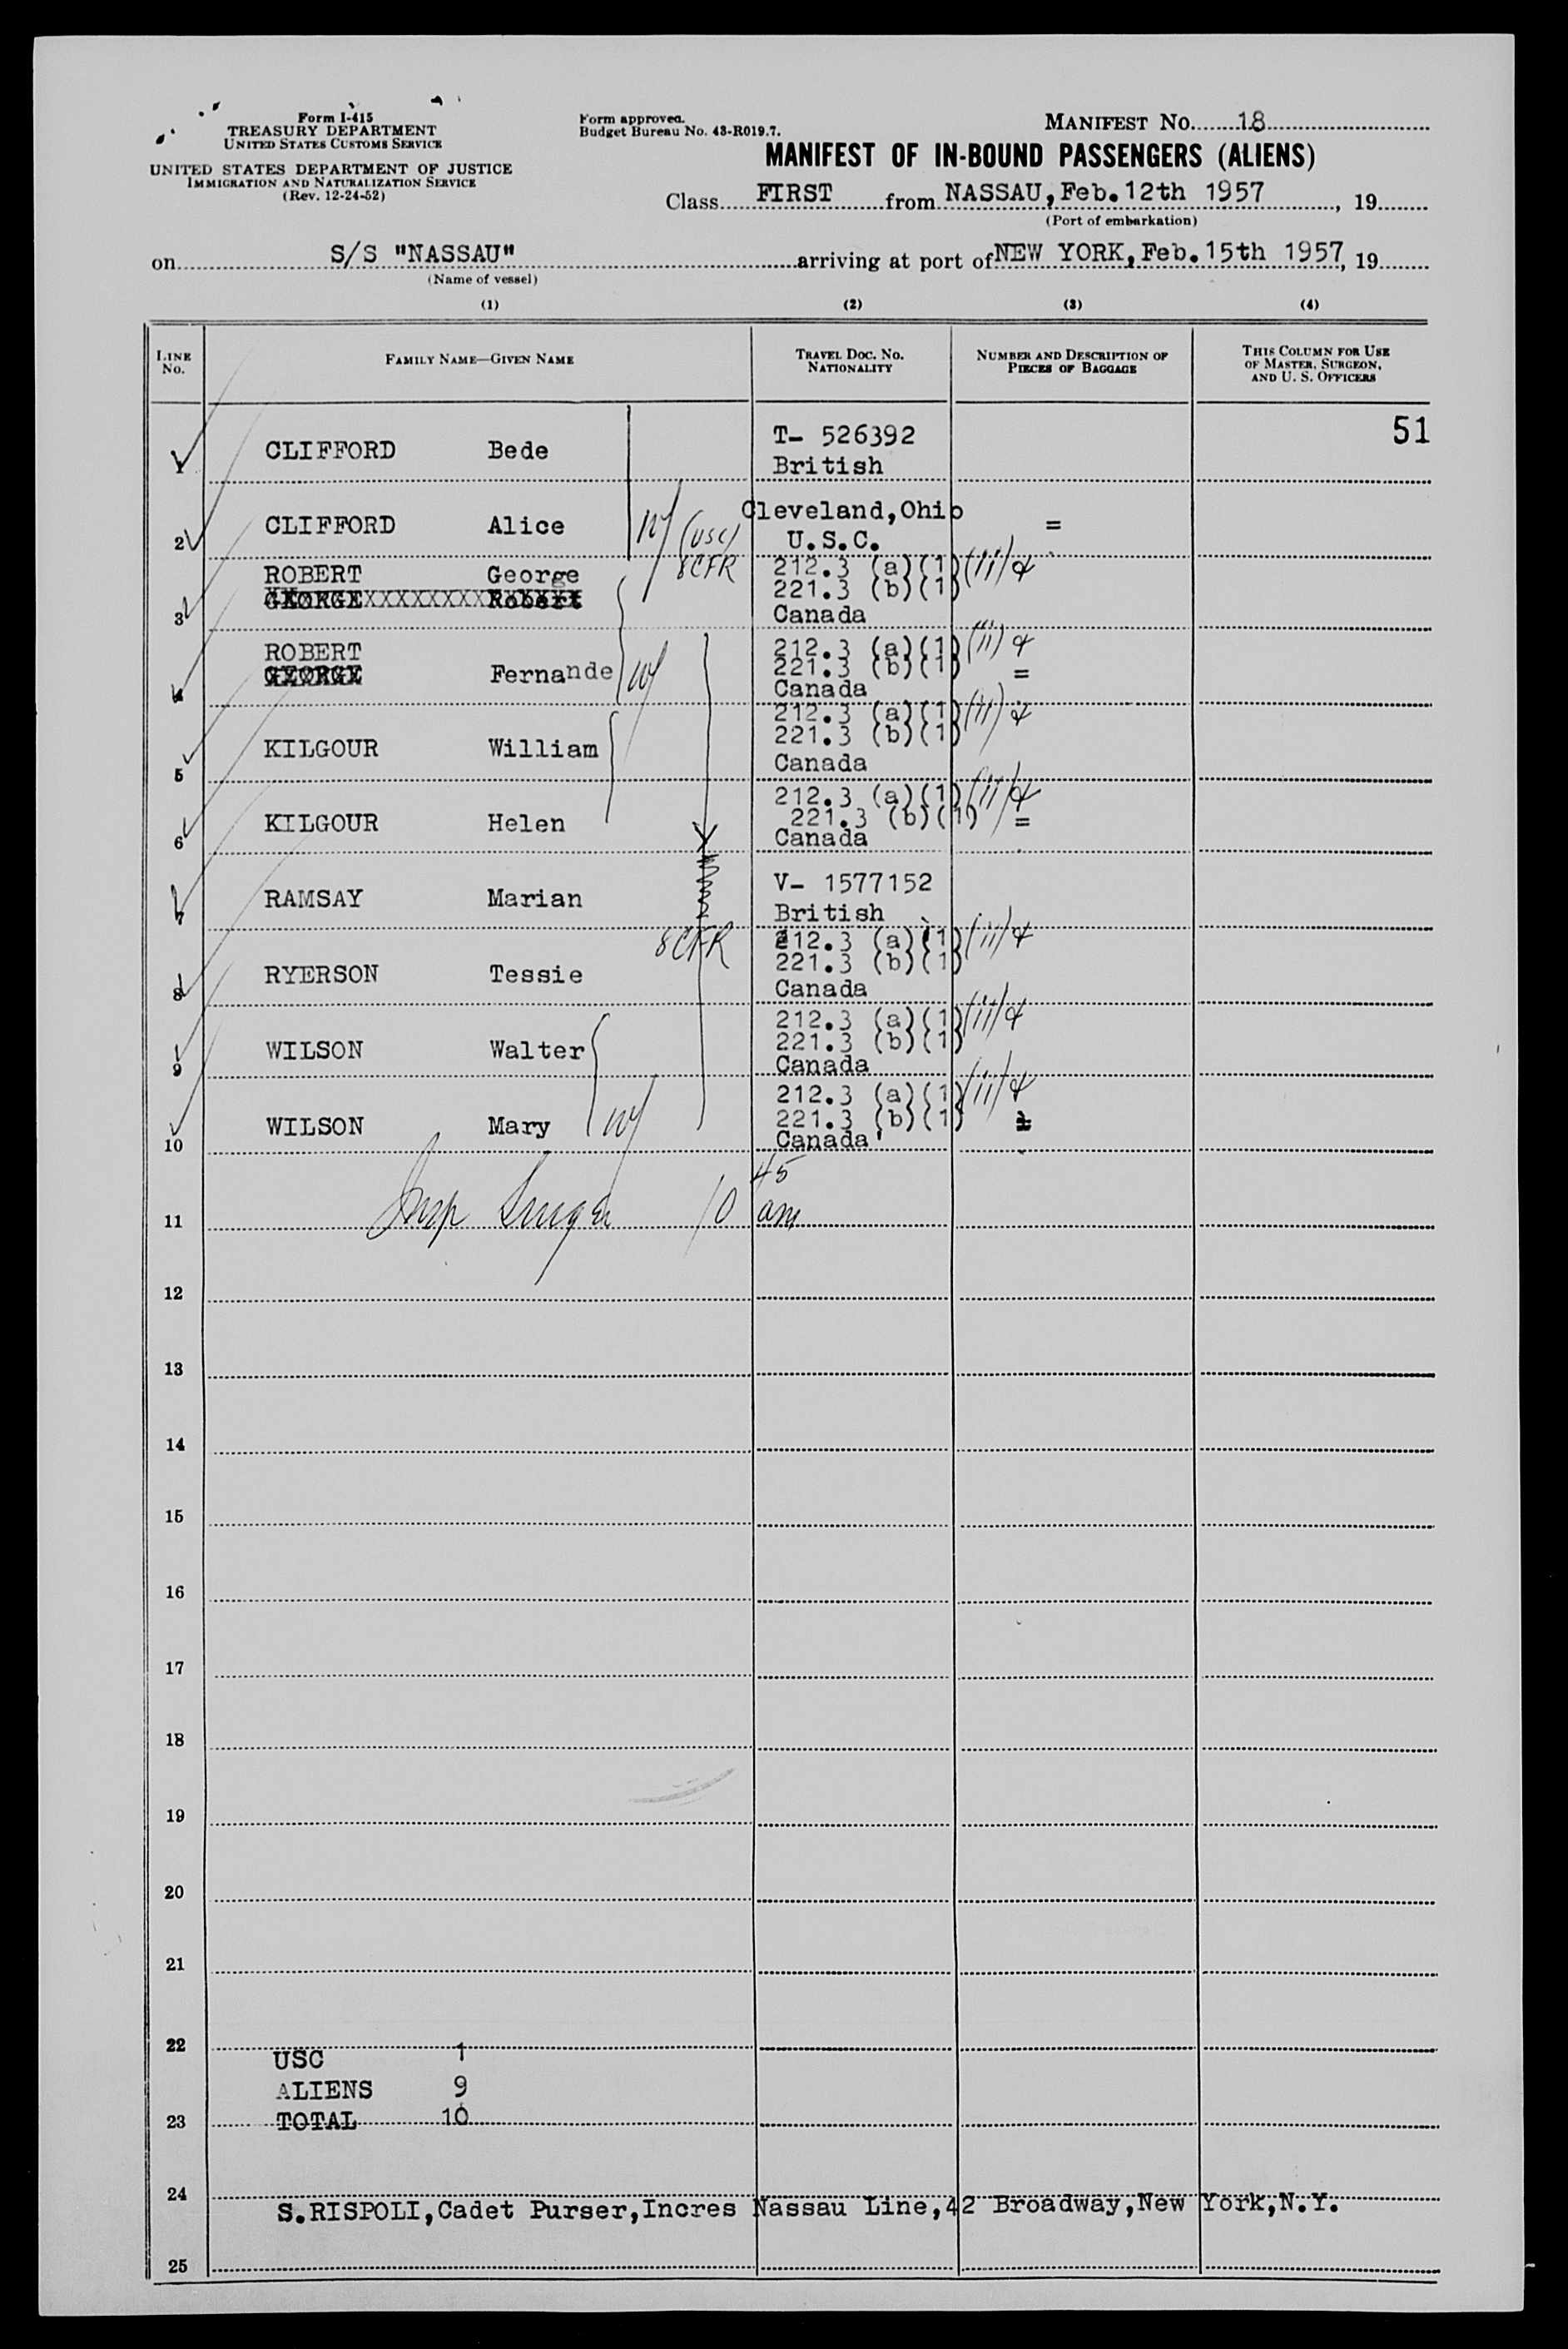 Form I-415
TREASURY DEPARTMENT
UNITED STATES CUSTOMS SERVICE
UNITED STATES DEPARTMENT OF JUSTICE
IMMIGRATION AND NATURALIZATION SERVICE
(Rev. 12-24-52)
Form approved.
Budget Bureau No. 43-R019.7.
MANIFEST NO. 18
MANIFEST OF IN-BOUND PASSENGERS (ALIENS)
Class FIRST from NASSAU, Feb. 12th 1957, 19
(Port of embarkation)
on S/S "NASSAU" arriving at port of NEW YORK, Feb. 15th 1957, 19
(Name of vessel)
(1) (2) (3) (4)
LINE NO.
FAMILY NAME—GIVEN NAME
TRAVEL DOC. NO. NATIONALITY
NUMBER AND DESCRIPTION OF PIECES OF BAGGAGE
THIS COLUMN FOR USE OF MASTER, SURGEON, AND U. S. OFFICERS
51
1 CLIFFORD Bede T- 526392
British
2 CLIFFORD Alice (USC) Cleveland, Ohio =
U.S.C.
ROBERT George 8CFR 212.3 (a)(1)(ii) &
3 GEORGEXXXXXXXXXRobert 221.3 (b)(1)
Canada
ROBERT 212.3 (a)(1)(ii) &
4 GEORGE Fernande 221.3 (b)(1) =
Canada
212.3 (a)(1)(ii) &
5 KILGOUR William 221.3 (b)(1)
Canada
212.3 (a)(1)(ii) &
6 KILGOUR Helen 221.3 (b)(1) =
Canada
7 RAMSAY Marian V- 1577152
British
8CFR 212.3 (a)(1)(ii) &
8 RYERSON Tessie 221.3 (b)(1)
Canada
212.3 (a)(1)(ii) &
9 WILSON Walter 221.3 (b)(1)
Canada
212.3 (a)(1)(ii) &
10 WILSON Mary 221.3 (b)(1)
Canada
11 Insp 10 45 am
12
13
14
15
16
17
18
19
20
21
22
USC 1
ALIENS 9
23 TOTAL 10
24
S. RISPOLI, Cadet Purser, Incres Nassau Line, 42 Broadway, New York, N.Y.
25